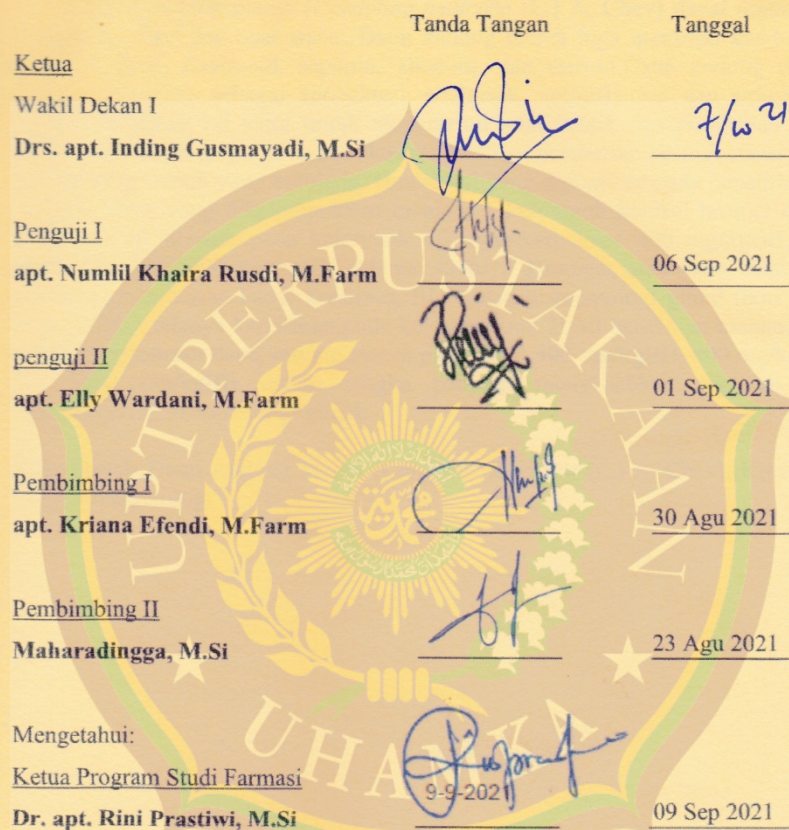 Tanda Tangan Tanggal
Ketua
Wakil Dekan I
Drs. apt. Inding Gusmayadi, M.Si
Penguji I
apt. Numlil Khaira Rusdi, M.Farm 06 Sep 2021
penguji II
apt. Elly Wardani, M.Farm 01 Sep 2021
Pembimbing I
apt. Kriana Efendi, M.Farm 30 Agu 2021
Pembimbing II
Maharadingga, M.Si 23 Agu 2021
Mengetahui:
Ketua Program Studi Farmasi
9-9-2021
Dr. apt. Rini Prastiwi, M.Si 09 Sep 2021
UPT PERPUSTAKAAN
UHAMKA